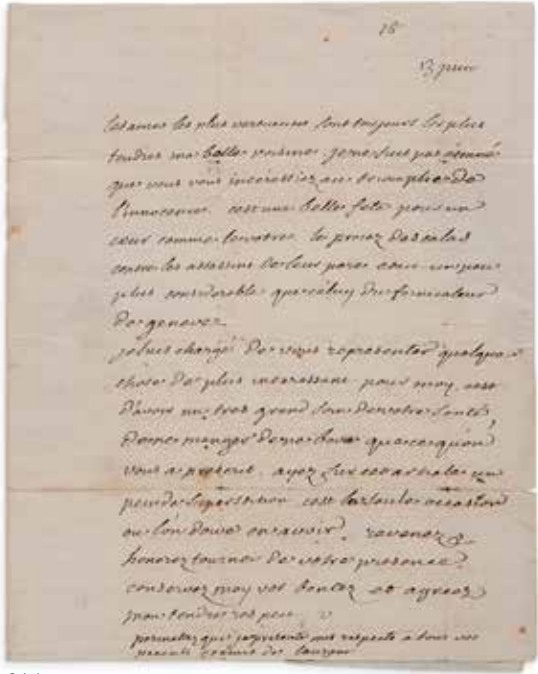 16
13 juin
les ames les plus vertueuses sont toujours les plus
tendres ma belle voisine. je ne suis pas étonné
que vous vous interessiez au triomphe de
l'innocence. cest une belle fete pour un
cœur comme le votre. le procez des calas
contre les assassins de leur pere est un peu
plus considerable que celuy du fornicateur
de geneve.
je suis chargé de vous representer quelque
chose de plus interessant pour moy, cest
d'avoir un tres grand soin de votre santé,
de ne manger de ne boire que ce qu'on
vous a prescrit. ayez sur cet article un
peu de superstition. cest la seule occasion
ou l'on doive en avoir. revenez
honorez tourney de votre presence.
conservez moy vos bontez et agreez
mon tendre respect. v
permettez que je presente mes respects a tous vos
parents de